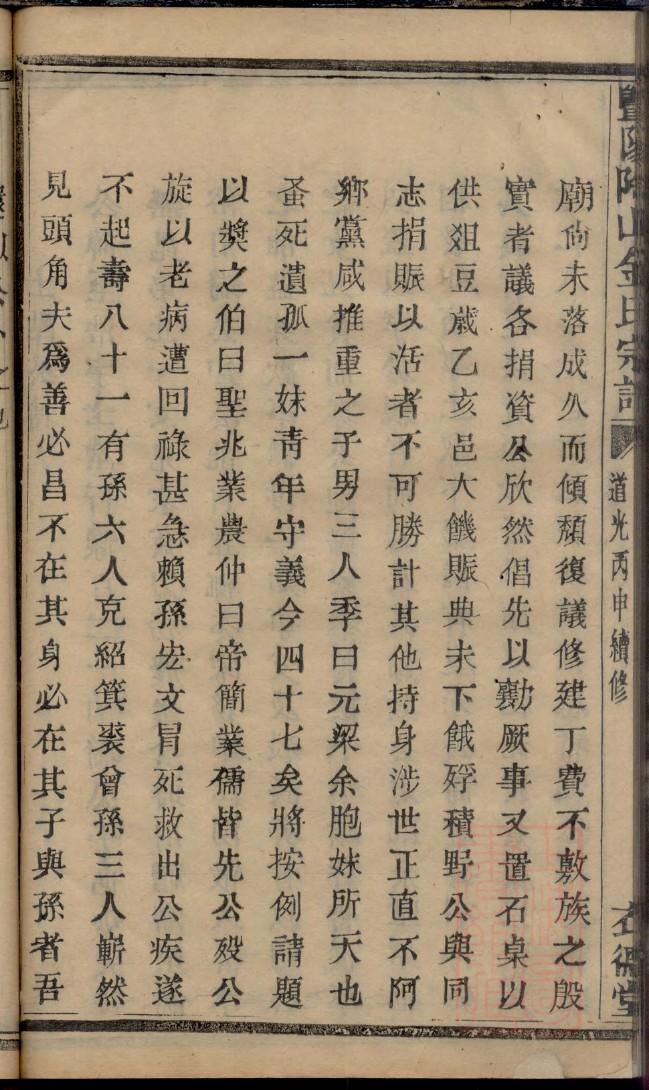 暨陽陶山金氏宗譜 道光丙申續修
廟尙未落成久而傾頽復議修建丁費不敷族之殷
實者議各捐資公欣然倡先以勷厥事又置石桌以
供俎豆歲乙亥邑大饑賑典未下餓殍積野公與同
志捐賑以活者不可勝計其他持身涉世正直不阿
鄕黨咸推重之子男三人季曰元梁余胞妹所天也
蚤死遺孤一妹靑年守義今四十七矣將按例請題
以獎之伯曰聖兆業農仲曰帝簡業儒皆先公歿公
旋以老病遭回祿甚急賴孫宏文冐死救出公疾遂
不起壽八十一有孫六人克紹箕裘曾孫三人嶄然
見頭角夫爲善必昌不在其身必在其子與孫者吾